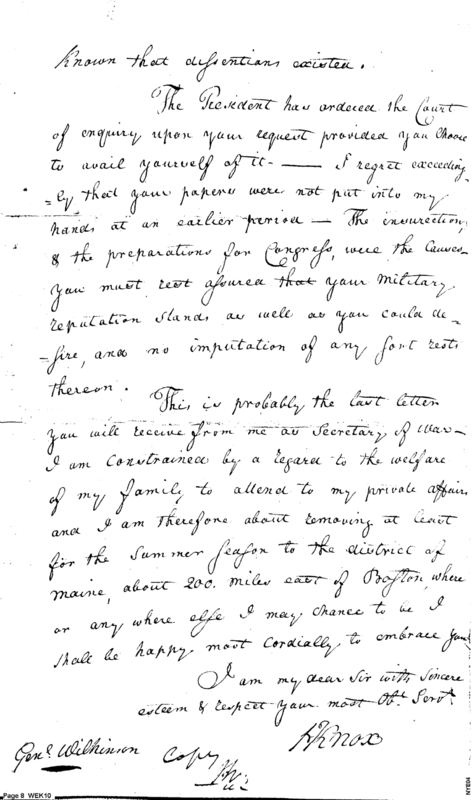 Known that dissentions existed.
The President has ordered the Court
of enquiry upon your request provided you choose
to avail yourself of it — I regret exceeding
=ly that your papers were not put into my
hands at an earlier period — The insurection,
& the preparations for Congress, were the causes—
You must rest assured that your military
reputation stands as well as you could de-
=sire, and no imputation of any sort rests
thereon.
This is probably the last letter
you will receive from me as Secretary of War—
I am constrained by a regard to the welfare
of my family to attend to my private affairs
and I am therefore about removing at least
for the summer season to the district of
maine, about 200. miles east of Boston, where
or any where else I may chance to be I
shall be happy most cordially to embrace you
I am my dear Sir with sincere
esteem & respect your most Obt. Servt.
HKnox
Genl. Wilkinson Copy
Page 8 WEK10